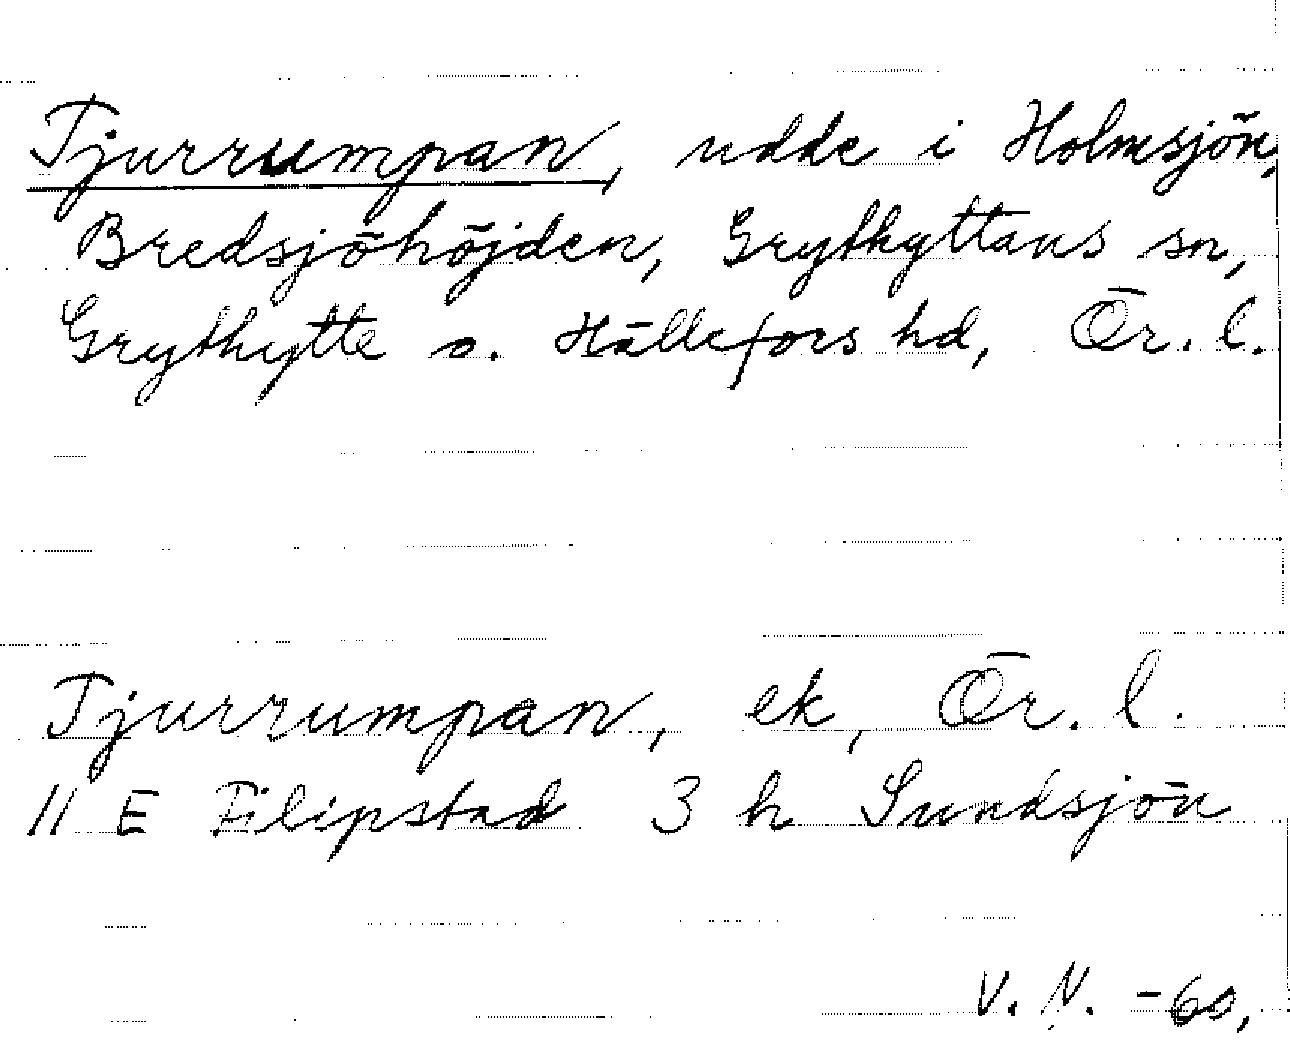 Tjurrumpan, udde i Holmsjön,
Bredsjöhöjden, Grythyttans sn,
Grythytte o. Hällefors hd, Ör. l.
Tjurrumpan, ek, Ör. l.
11 E Filipstad 3 h Sundsjön
V. N. -60,